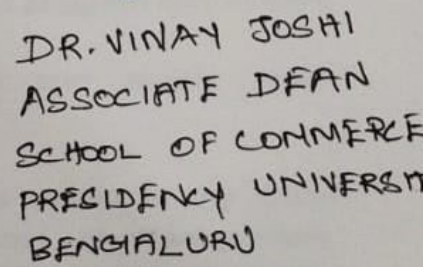 DR. VINAY JOSHI
ASSOCIATE DEAN
SCHOOL OF COMMERCE
PRESIDENCY UNIVERSIT
BENGALURU